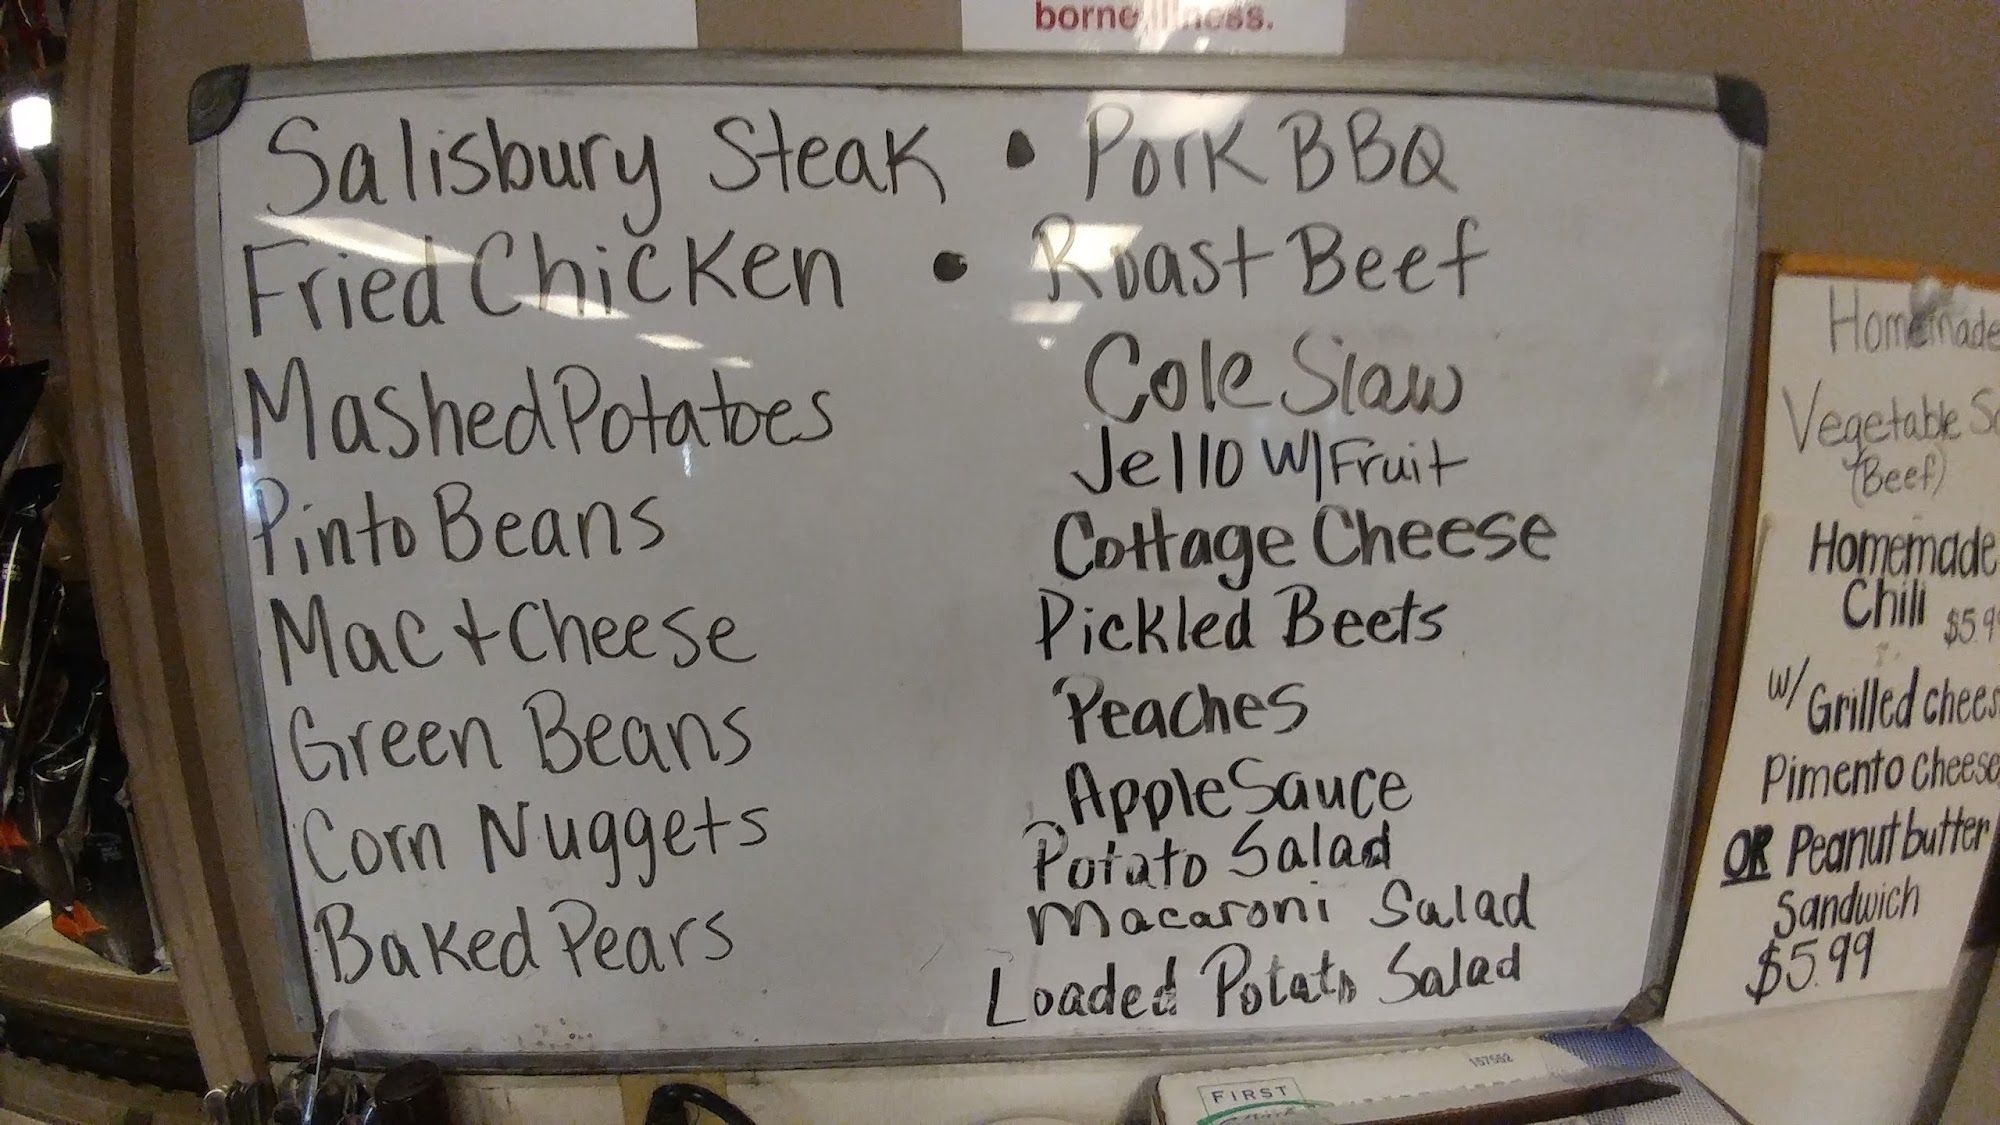 borne illness.
Salisbury Steak • Pork BBQ
Fried Chicken • Roast Beef
Mashed Potatoes
Pinto Beans
Mac + Cheese
Green Beans
Corn Nuggets
Baked Pears
Cole Slaw
Jello W/ Fruit
Cottage Cheese
Pickled Beets
Peaches
Apple Sauce
Potato Salad
Macaroni Salad
Loaded Potato Salad
Homemade
Vegetable
(Beef)
Homemade
Chili
$5.9
w/ Grilled chees
Pimento cheese
OR Peanut butter
Sandwich
$5.99
FIRST
Mark
157552